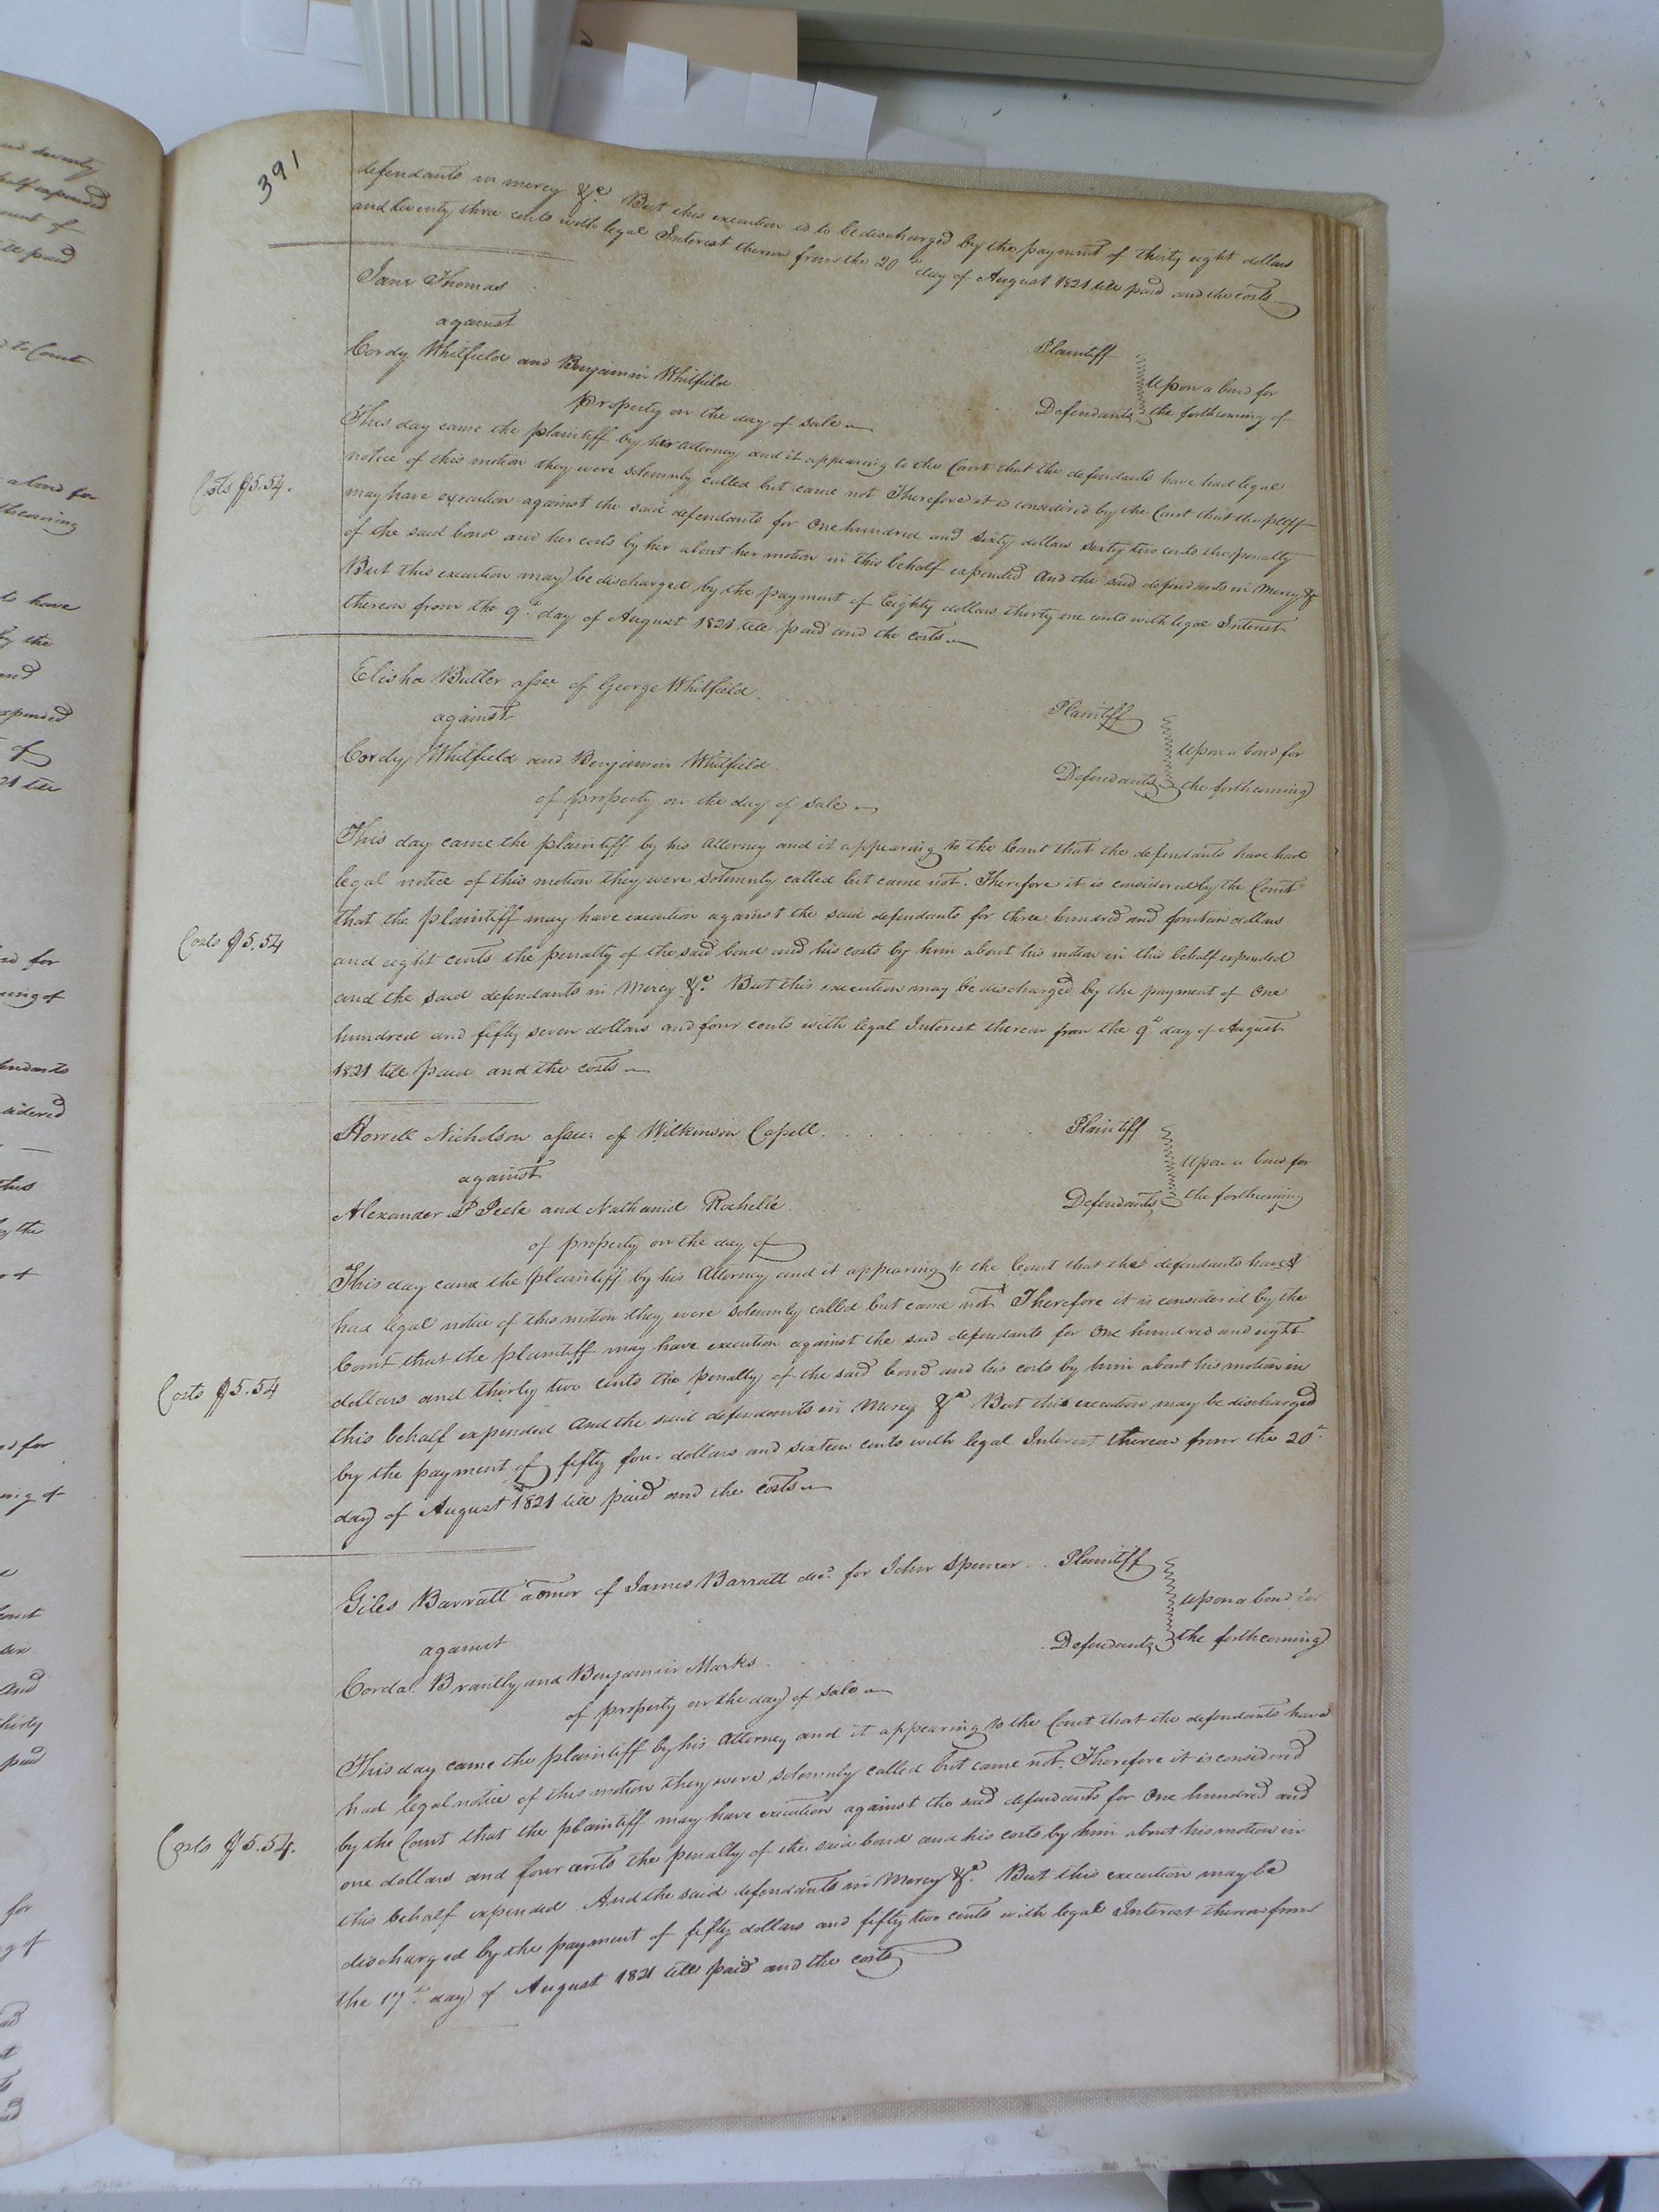 391
defendants in mercy &c. But this execution is to be discharged by the payment of thirty eight dollars
and twenty three cents with legal Interest thereon from the 20th day of August 1821 till paid and the costs
Jane Thomas
Plaintiff
against
Upon a bond for
Cordy Whitfield and Benjamin Whitfield
Defendants
the forthcoming of
property on the day of sale
This day came the plaintiff by her attorney and it appearing to the Court that the defendants have had legal
notice of this motion they were solemnly called but came not Therefore it is considered by the Court that the pltff
Costs $5.54.
may have execution against the said defendants for One hundred and sixty dollars sixty two cents the penalty
of the said bond and her costs by her about her motion in this behalf expended And the said defendants in Mercy &c
But this execution may be discharged by the payment of Eighty dollars thirty one cents with legal Interest
thereon from the 9th day of August 1821 till paid and the costs
Elisha Butler assee of George Whitfield
Plaintiff
against
Upon a bond for
Cordy Whitfield and Benjamin Whitfield
Defendants
the forthcoming
of property on the day of sale
This day came the plaintiff by his Attorney and it appearing to the Court that the defendants have had
legal notice of this motion they were solemnly called but came not. Therefore it is considered by the Court
that the plaintiff may have execution against the said defendants for three hundred and fourteen dollars
Costs $5.54
and eight cents the penalty of the said bond and his costs by him about his motion in this behalf expended
and the said defendants in Mercy &c. But this execution may be discharged by the payment of One
hundred and fifty seven dollars and four cents with legal Interest thereon from the 9th day of August
1821 till paid and the costs
Nicholson assee. of Wilkinson Capell
Plaintiff
against
Upon a bond for
Alexander P Peete and Nathaniel Rochelle
Defendants
the forthcoming
of property on the day of
This day came the plaintiff by his Attorney and it appearing to the Court that the defendants have
had legal notice of this motion they were solemnly called but came not Therefore it is considered by the
Court that the plaintiff may have execution against the said defendants for One hundred and eight
Costs $5.54
dollars and thirty two cents the penalty of the said bond and his costs by him about his motion in
this behalf expended And the said defendants in Mercy &c But this execution may be discharged
by the payment of fifty four dollars and sixteen cents with legal Interest thereon from the 20th
day of August 1821 till paid and the costs
Giles Barratt of James Barratt decd. for John Spencer
Plaintiff
against
upon a bond for
Cordal Brantly and Benjamin Marks
Defendants
the forthcoming
of property on the day of sale
This day came the plaintiff by his Attorney and it appearing to the Court that the defendants have
had legal notice of this motion they were solemnly called but came not. Therefore it is considered
by the Court that the plaintiff may have execution against the said defendants for One hundred and
Costs $5.54.
one dollars and four cents the penalty of the said bond and his costs by him about his motion in
this behalf expended And the said defendants in Mercy &c. But this execution may be
discharged by the payment of fifty dollars and fifty two cents with legal Interest thereon from
the 17th day of August 1821 till paid and the costs